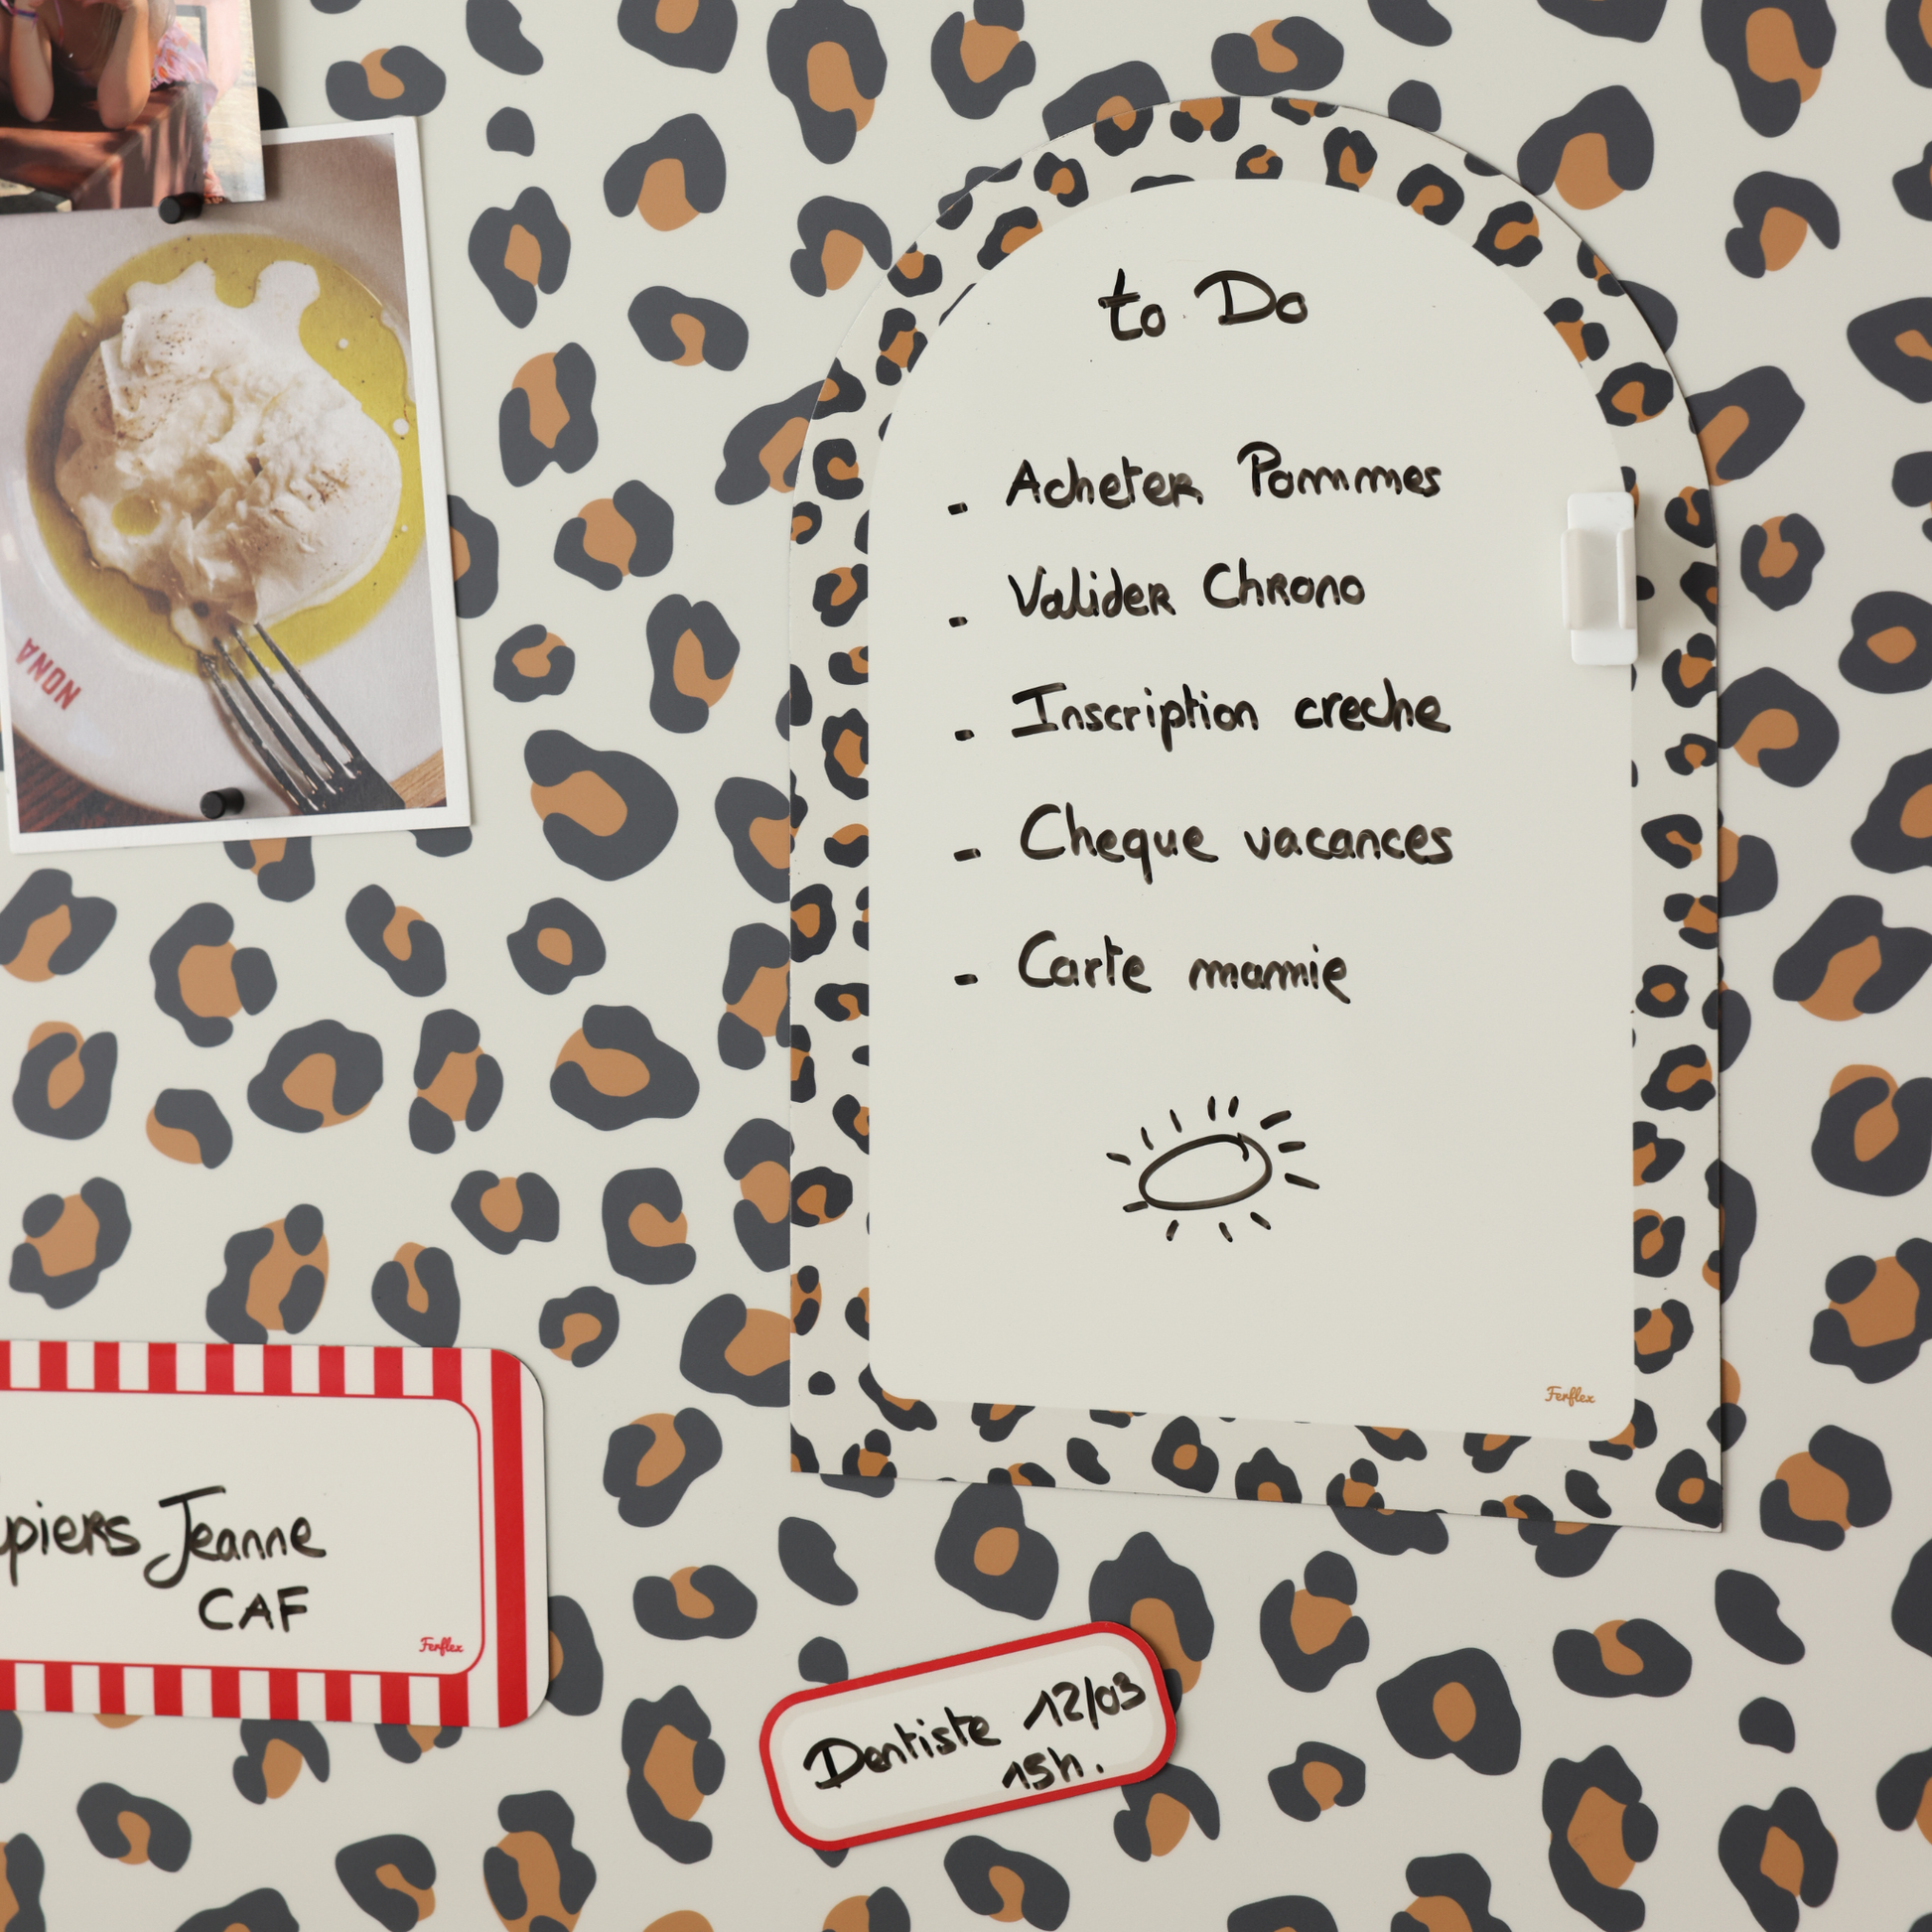 to Do
- Acheter Pommes
- Valider Chrono
- Inscription creche
- Cheque vacances
- Carte mamie
Ferflex
NONA
piers Jeanne
CAF
Ferflex
Dentiste 12/03
15h.